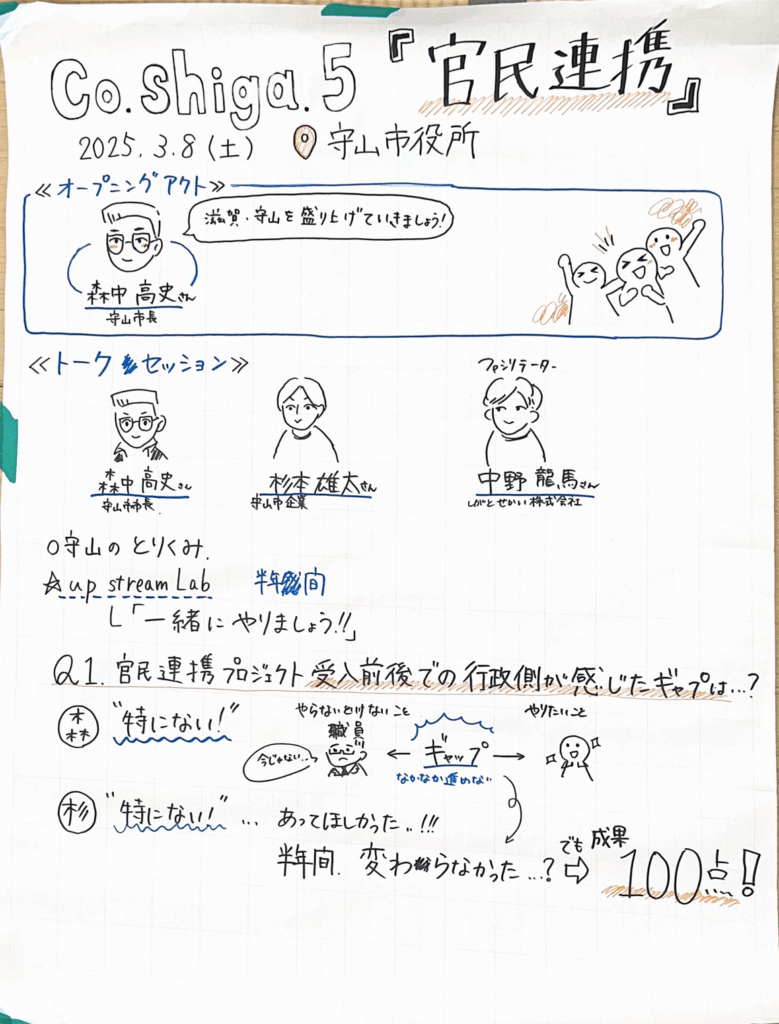 Co.shiga.5 『官民連携』
2025.3.8(土) 守山市役所
≪オープニングアクト≫
滋賀・守山を盛り上げていきましょう!
森中 高史さん
守山市長
≪トークセッション≫
ファシリテーター
森中 高史さん
守山市市長
杉本 雄太さん
守山市企業
中野 龍馬さん
しがとせかい株式会社
○守山のとりくみ.
☆up stream Lab 半年間
└「一緒にやりましょう!!」
Q1.官民連携プロジェクト受入前後での行政側が感じたギャップは…?
森 "特にない!"
やらないといけないこと
職員
今じゃない…
← ギャップ →
なかなか進めない
やりたいこと
杉 "特にない!" … あってほしかった..!!!
半年間. 変わらなかった…? でも ⇨ 成果 100点!